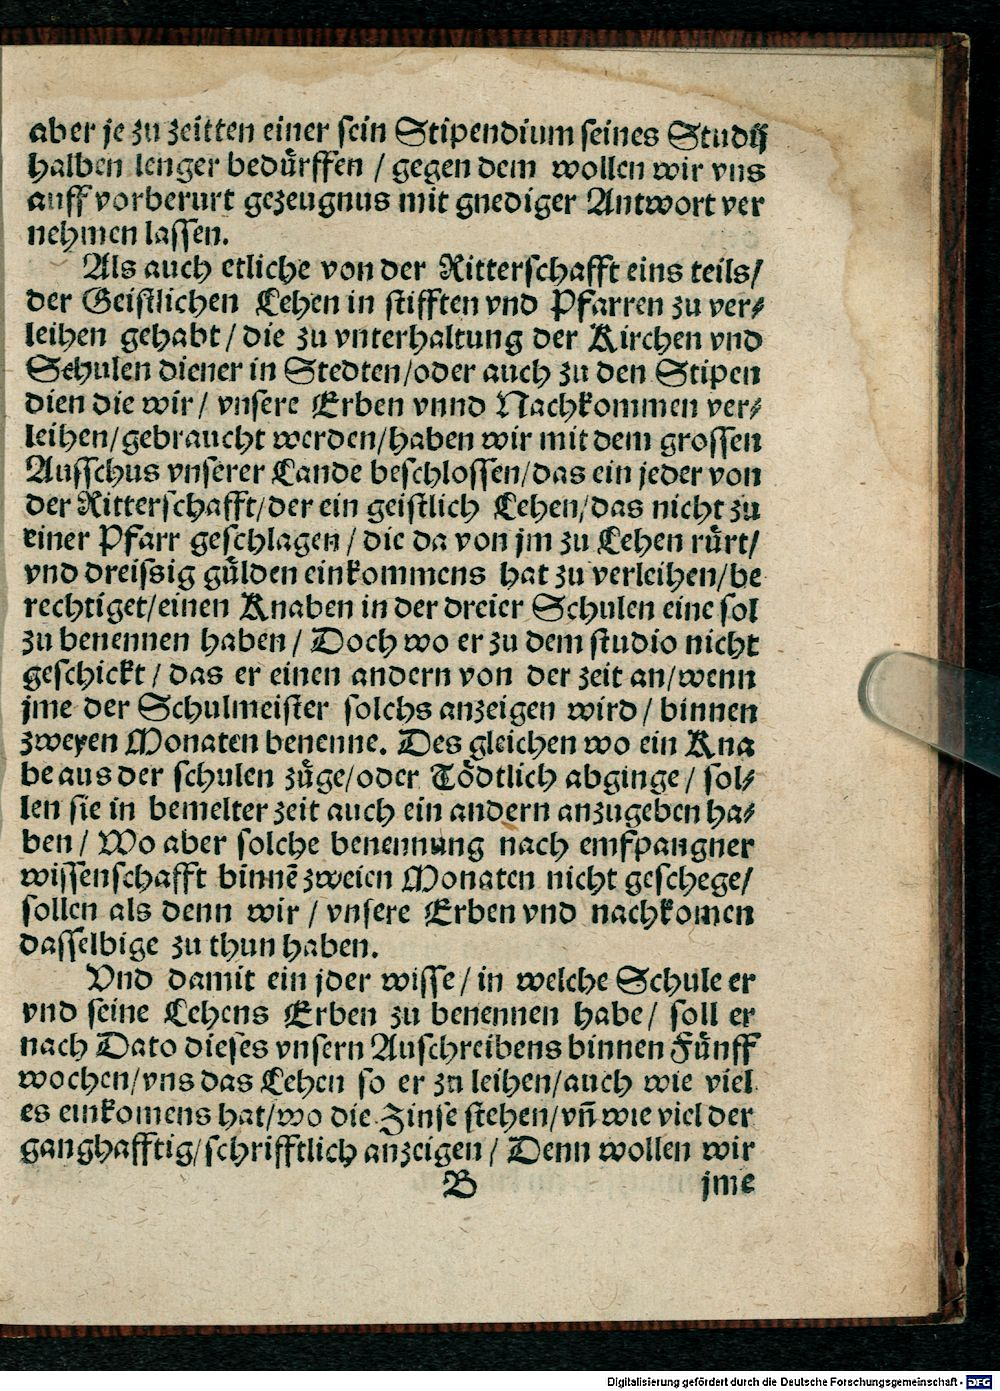 aber je zu zeitten einer sein Stipendium seines Studij
halben lenger bedürffen / gegen dem wollen wir vns
auff vorberurt gezeugnus mit gnediger Antwort ver
nehmen lassen.
Als auch etliche von der Ritterschafft eins teils/
der Geistlichen Lehen in stifften vnd Pfarren zu ver⸗
leihen gehabt / die zu vnterhaltung der Kirchen vnd
Schulen diener in Stedten/oder auch zu den Stipen
dien die wir / vnsere Erben vnnd Nachkommen ver⸗
leihen/gebraucht werden/haben wir mit dem grossen
Ausschus vnserer Lande beschlossen/das ein jeder von
der Ritterschafft/der ein geistlich Lehen/das nicht zu
einer Pfarr geschlagen / die da von jm zu Lehen rürt/
vnd dreissig gülden einkommens hat zu verleihen/be
rechtiget/einen Knaben in der dreier Schulen eine sol
zu benennen haben / Doch wo er zu dem studio nicht
geschickt / das er einen andern von der zeit an/wenn
jme der Schulmeister solchs anzeigen wird / binnen
zweyen Monaten benenne. Des gleichen wo ein Kna
be aus der schulen züge/oder Tödtlich abginge / sol⸗
len sie in bemelter zeit auch ein andern anzugeben ha⸗
ben / Wo aber solche benennung nach emfpangner
wissenschafft binnē zweien Monaten nicht geschege/
sollen als denn wir / vnsere Erben vnd nachkomen
dasselbige zu thun haben.
Vnd damit ein jder wisse / in welche Schule er
vnd seine Lehens Erben zu benennen habe / soll er
nach Dato dieses vnsern Auschreibens binnen Fünff
wochen/vns das Lehen so er zu leihen/auch wie viel
es einkomens hat/wo die Zinse stehen/vñ wie viel der
ganghafftig/schrifftlich anzeigen / Denn wollen wir
B jme
Digitalisierung gefördert durch die Deutsche Forschungsgemeinschaft - DFG